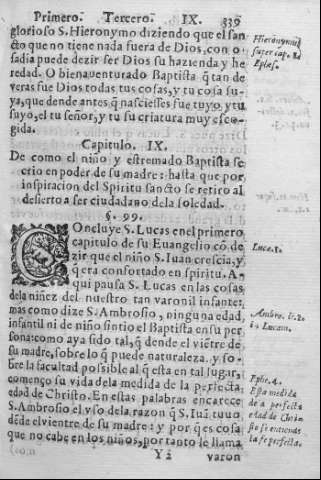 Primero. Tercero. IX. 339
glorioso S. Hieronymo diziendo que el san
cto que no tiene nada fuera de Dios, con o
sadia puede dezir ser Dios su hazienda y he
redad. O bienauenturado Baptista q̃ tan de
veras fue Dios todas tus cosas, y tu cosa su-
ya, que dende antes q̃ nasciesses fue tuyo, y tu
suyo, el tu señor, y tu su criatura muy esco-
gida.
Hieronymus
super cap. 1. ad
Ephes.
Capitulo. IX.
De como el niño y estremado Baptista se
crio en poder de su madre: hasta que por
inspiracion del Spiritu sancto se retiro al
desierto a ser ciudadano de la soledad.
§. 99.
COncluye S. Lucas en el primero
capitulo de su Euangelio cō de-
zir que el niño S. Iuan crescia, y
q̃ era confortado en spiritu. A-
qui pausa S. Lucas en las cosas
de la niñez del nuestro tan varonil infante:
mas como dize S. Ambrosio, ninguna edad
infantil ni de niño sintio el Baptista en su per
sona: como aya sido tal, q̃ dende el viētre de
su madre, sobre lo q̃ puede naturaleza, y so-
bre la facultad possible al q̃ esta en tal lugar,
començo su vida de la medida de la perfecta
edad de Christo. En estas palabras encarece
S. Ambrosio el vso dela razon q̃ S. Iuā tuuo
dēde el vientre de su madre: y por q̃ es cosa
que no cabe en los niños, por tanto le llama
Luca. 1.
Ambro. li. 2.
in Lucam.
Ephe. 4.
Esta medida
de a perfecta
edad de Chris
to se entiende
la fe perfecta.
Yy varon